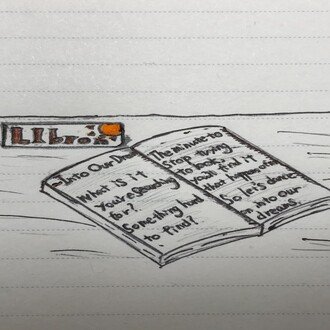 Libro
Into Our Dr
What is it
You're Searching
for?
Something hard
to find?
The minute to
Stop trying
To look,
You'll find it
that happens often
So let's dance
in into our
dreams.